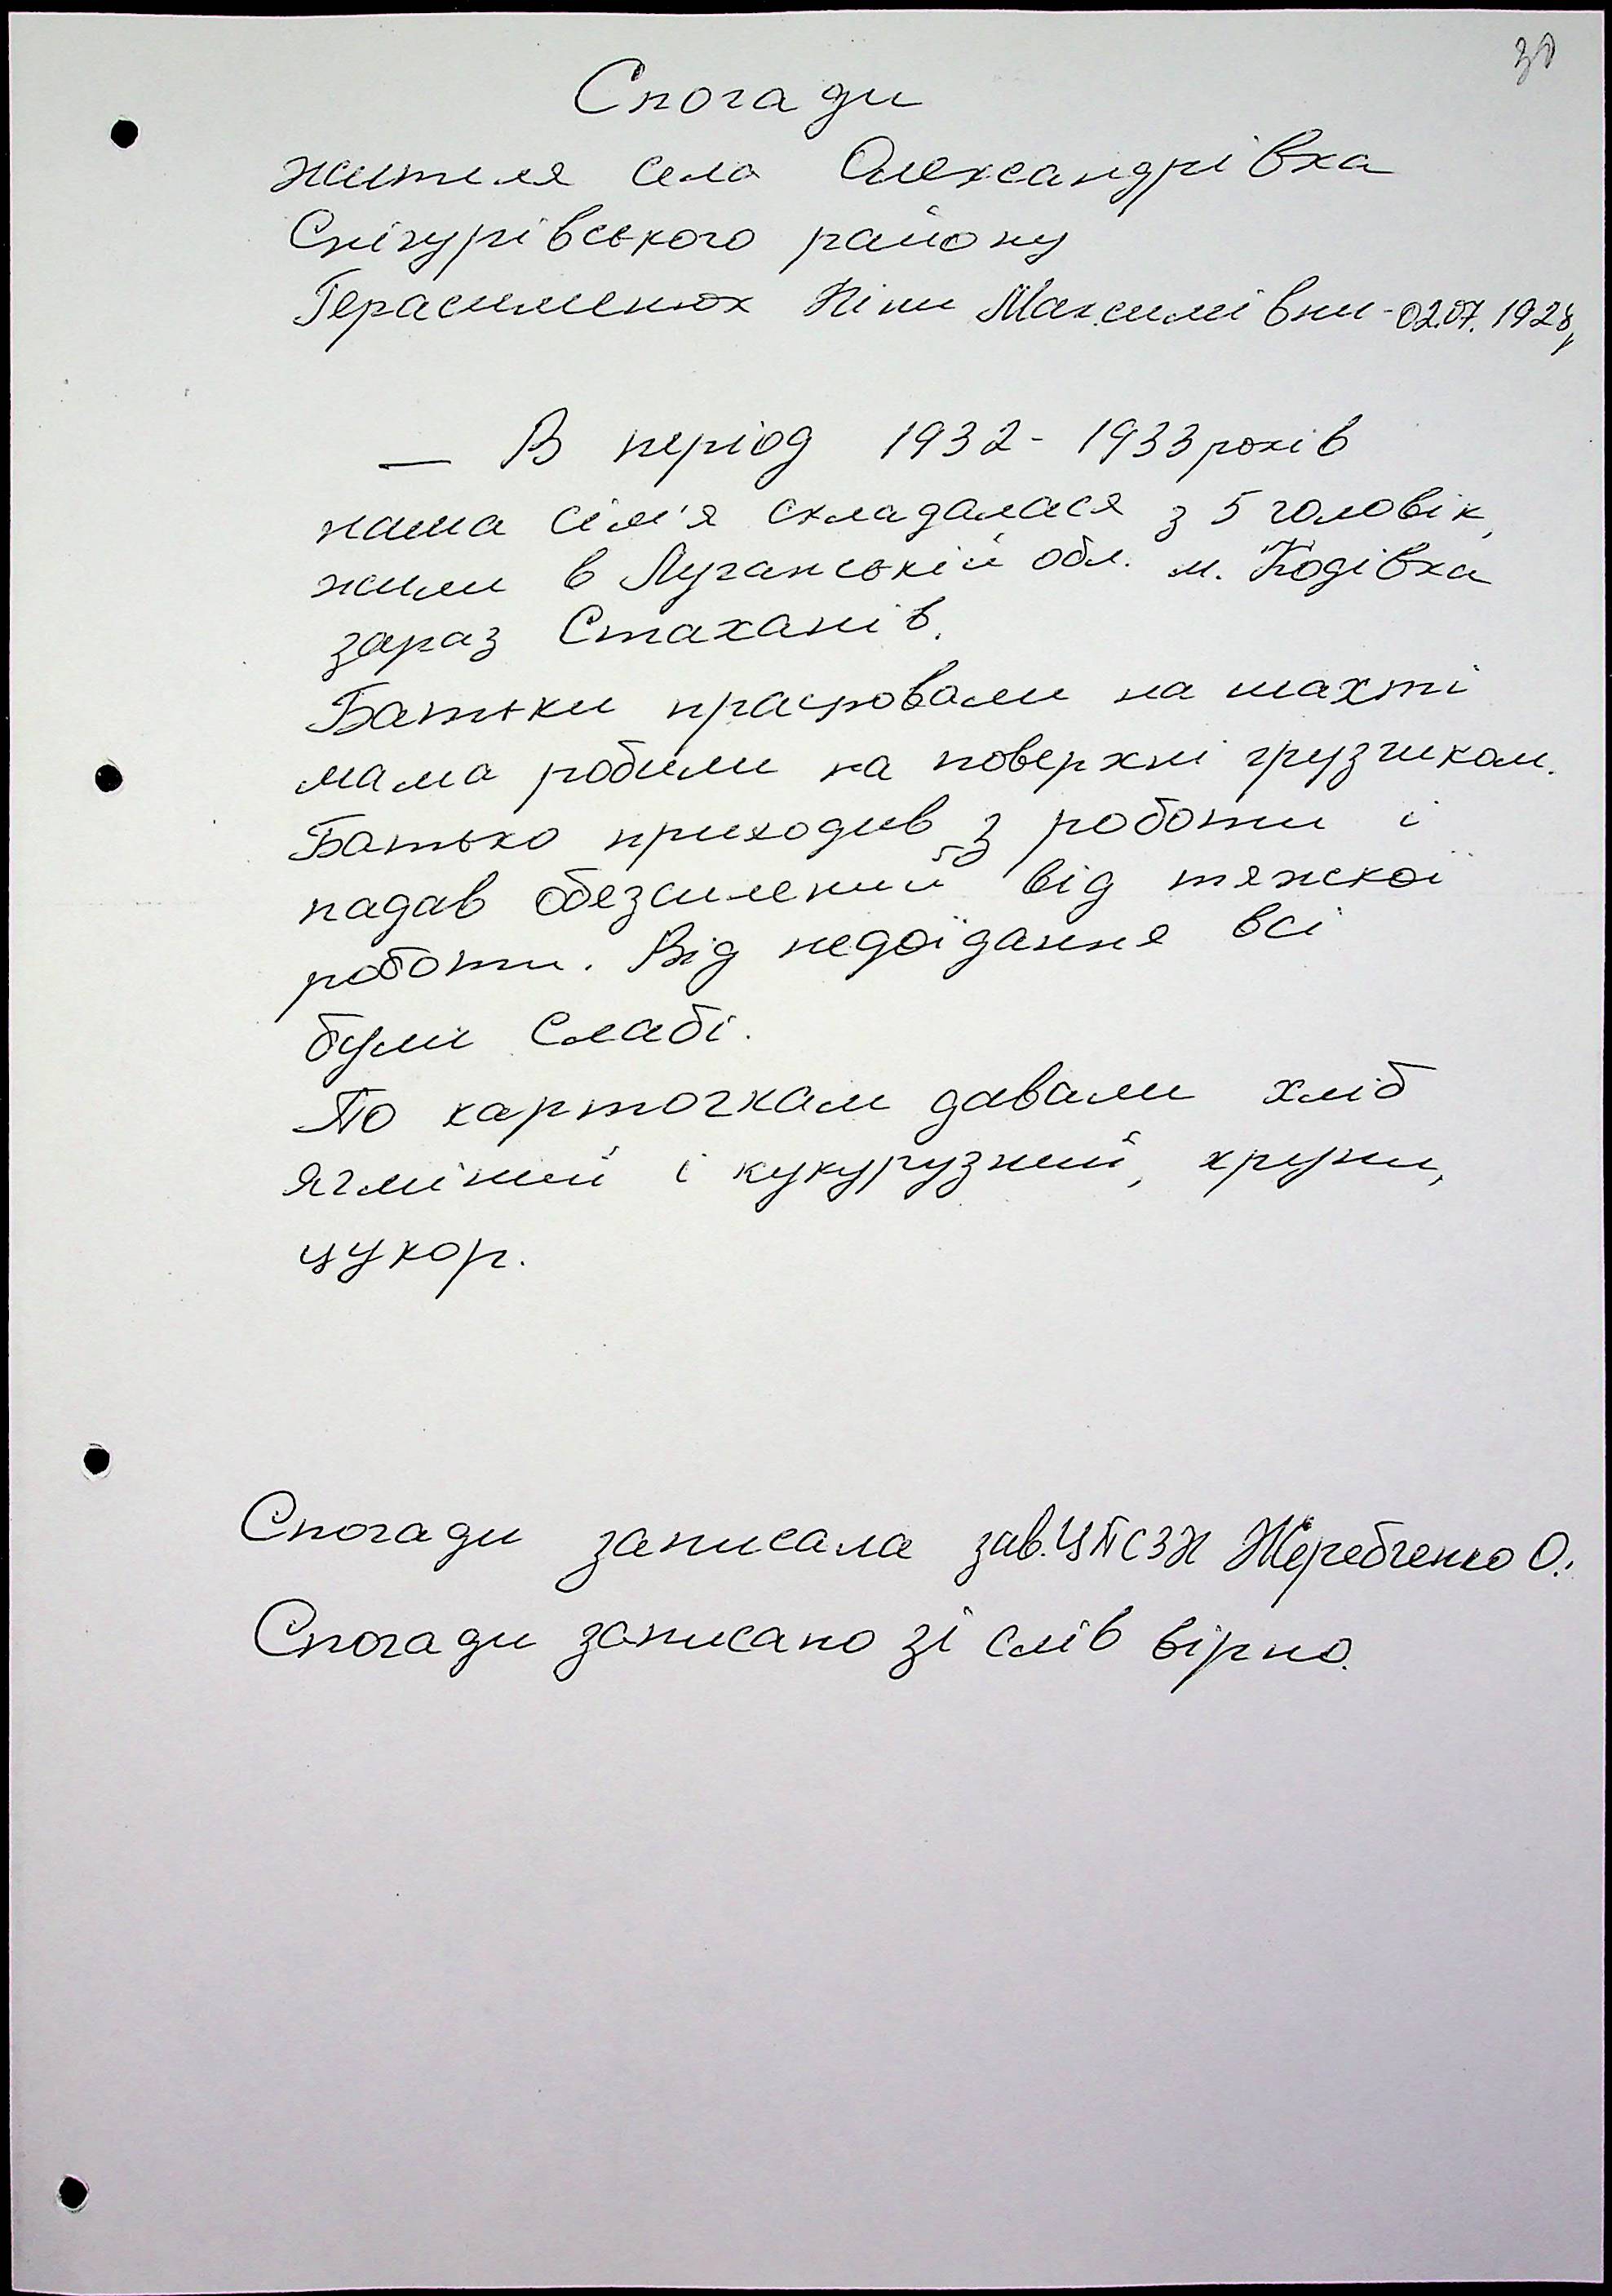 30
Спогади
жителя села Олександрівка
Снігурівського району
Герасименюк Ніни Максимівни - 02.07. 1928р
— В період 1932 - 1933 років
наша сім'я складалася з 5 чоловік,
жили в Луганській обл. м. Кодівка
зараз Стаханів.
Батьки працювали на шахті
мама робили на поверхні грузчиком.
Батько приходив з роботи і
падав обезсилений від тяжкої
роботи. Від недоїдання всі
були слабі.
По карточкам давали хліб
ячмінний і кукурузний, крупи,
цукор.
Спогади записала зав. ЦПСЗН Жеребченко О.
Спогади записано зі слів вірно.